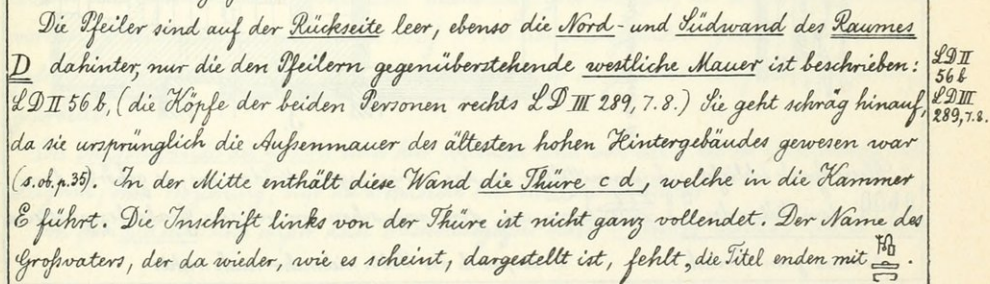 Die Pfeiler sind auf der Rückseite leer, ebenso die Nord- und Südwand des Raumes
D dahinter, nur die den Pfeilern gegenüberstehende westliche Mauer ist beschrieben:
LD II 56 b, (die Köpfe der beiden Personen rechts LD III 289, 7.8.) Sie geht schräg hinauf,
da sie ursprünglich die Außenmauer des ältesten hohen Hintergebäudes gewesen war
(s. ob. p. 35). In der Mitte enthält diese Wand die Thüre c d, welche in die Kammer
E führt. Die Inschrift links von der Thüre ist nicht ganz vollendet. Der Name des
Großvaters, der da wieder, wie es scheint, dargestellt ist, fehlt, die Titel enden mit .
LD II
56 b
LD III
289, 7.8.